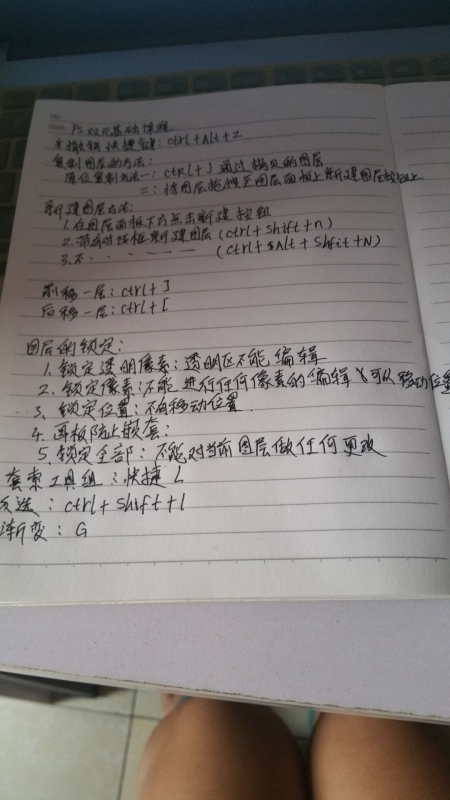 PS 双元基础课程
撤销快捷键: ctrl+Alt+Z
复制图层的方法:
原位复制方法一: ctRl+J 通过拷贝的图层
二: 将图层拖拽至图层面板上新建图层按钮上
新建图层方法:
1. 在图层面板下方点击新建按钮
2. 带有对话框新建图层 (ctrl+Shift+n)
3. 不 - - - - - (ctrl+Alt+Shfit+N)
前移一层: ctrl+]
后移一层: ctrl+[
图层的锁定:
1. 锁定透明像素: 透明区不能编辑
2. 锁定像素: 不能进行任何像素的编辑 可以移动位置
3. 锁定位置: 不能移动位置
4. 画板防止嵌套:
5. 锁定全部: 不能对当前图层做任何更改
套索工具组: 快捷 L
反选: ctrl+Shift+I
渐变: G